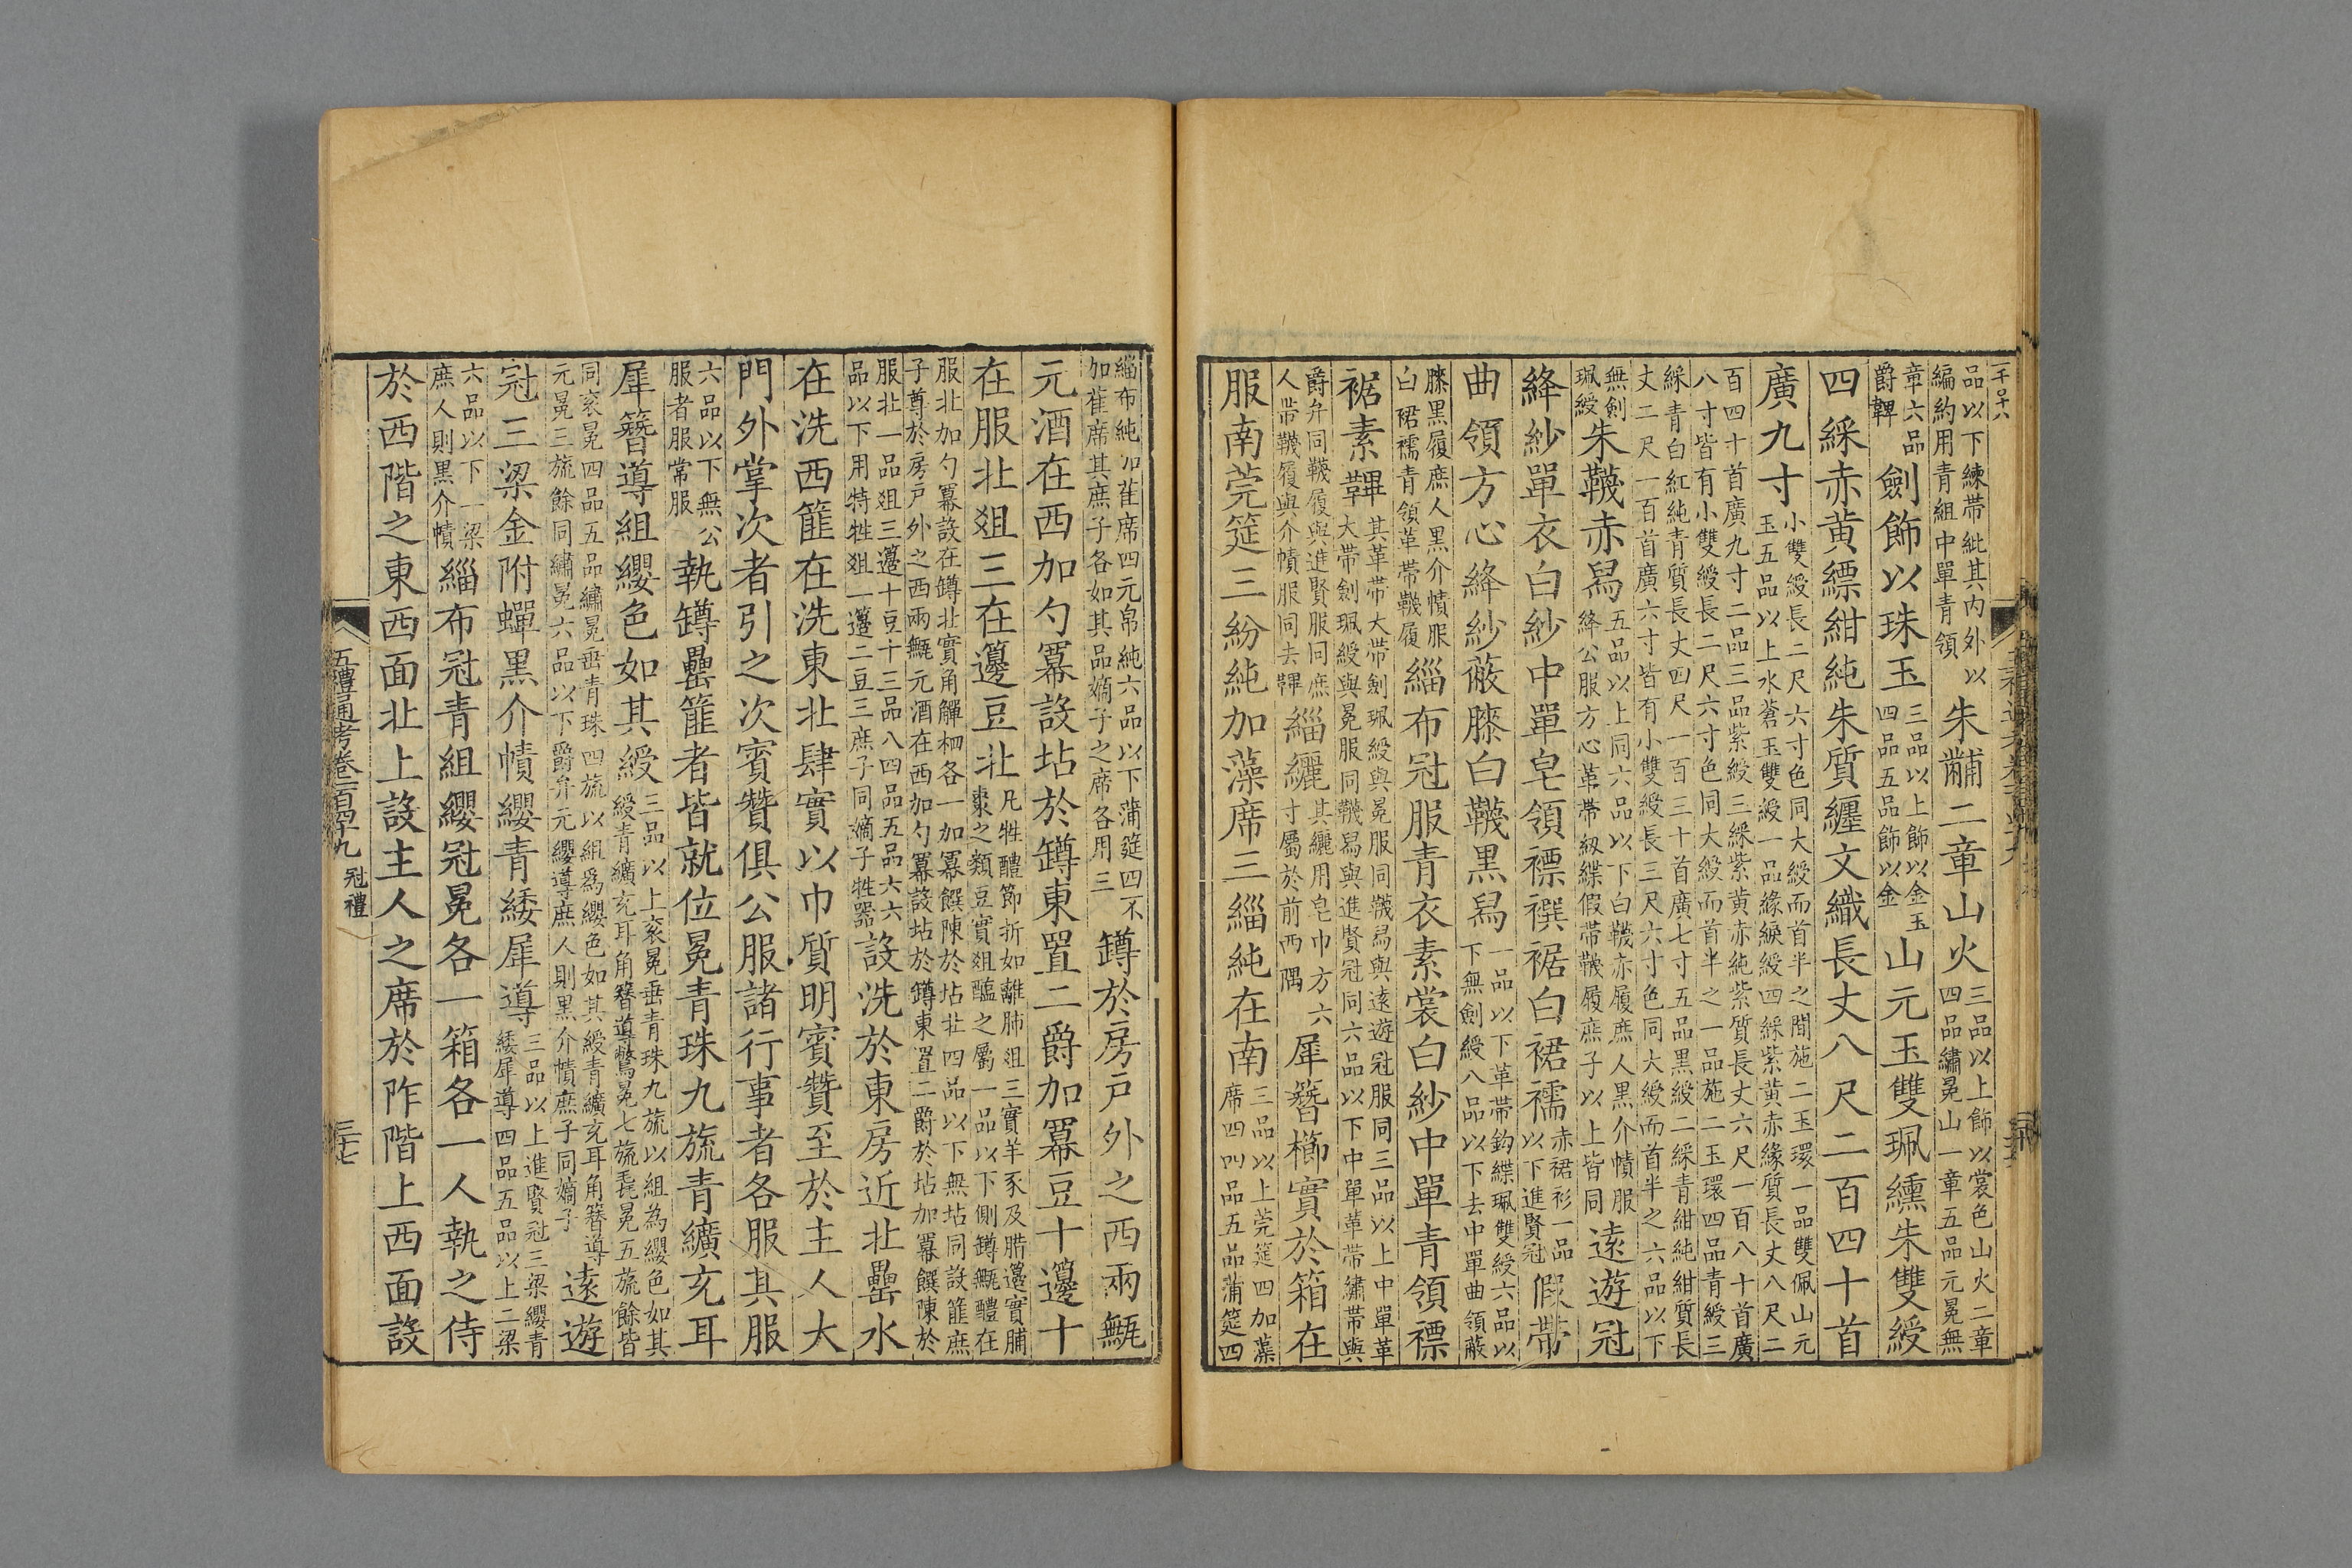 品以下練帶紕其内外以
編約用青組中單青領
朱黼二章山火
三品以上飾以裳色山火二章
四品繡冕山一章五品元冕無
章六品
爵韠
劍飾以珠玉
三品以上飾以金玉
四品五品飾以金
山元玉雙珮纁朱雙綬
四綵赤黄縹紺純朱質纏文織長丈八尺二百四十首
廣九寸
小雙綬長二尺六寸色同大綬而首半之間施二玉環一品雙佩山元
玉五品以上水蒼玉雙綬一品緣綟綬四綵紫黄赤緣質長丈八尺二
百四十首廣九寸二品三品紫綬三綵紫黄赤純紫質長丈六尺一百八十首廣
八寸皆有小雙綬長二尺六寸色同大綬而首半之一品施二玉環四品青綬三
綵青白紅純青質長丈四尺一百三十首廣七寸五品黑綬二綵青紺純紺質長
丈二尺一百首廣六寸皆有小雙綬長三尺六寸色同大綬而首半之六品以下
無劍
珮綬
朱韈赤舄
五品以上同六品以下白韈赤履庶人黑介幘服
絳公服方心革帶紉緤假帶韈履庶子以上皆同
逺遊冠
絳紗單衣白紗中單皂領褾襈裾白裙襦
赤裙衫一品
以下進賢冠
假帶
曲領方心絳紗蔽膝白韈黑舄
一品以下革帶鈎緤珮雙綬六品以
下無劍綬八品以下去中單曲領蔽
膝黑履庶人黑介幘服
白裙襦青領革帶韈履
緇布冠服青衣素裳白紗中單青領褾
裾素韠
其革帶大帶劍珮綬與冕服同韈舄與逺遊冠服同三品以上中單革
大帶劍珮綬與冕服同韈舄與進賢冠同六品以下中單革帶繡帶與
爵弁同韈履與進賢服同庶
人帶韈履與介幘服同去韠
緇纚
其纚用皂巾方六
寸屬於前西隅
犀簪櫛實於箱在
服南莞筵三紛純加藻席三緇純在南
三品以上莞筵四加藻
席四四品五品蒲筵四
緇布純加萑席四元帛純六品以下蒲筵四不
加萑席其庶子各如其品嫡子之席各用三
罇於房戸外之西兩甒
元酒在西加勺羃設坫於罇東置二爵加羃豆十籩十
在服北俎三在籩豆北
凡牲體節折如離肺俎三實羊豕及腊籩實脯
棗之類豆實俎醢之屬一品以下側罇甒醴在
服北加勺羃設在罇北實角觶柶各一加羃饌陳於坫北四品以下無坫同設篚庶
子尊於房戸外之西兩甒元酒在西加勺羃設坫於罇東置二爵於坫加羃饌陳於
服北一品俎三籩十豆十三品八四品五品六六
品以下用特牲俎一籩二豆三庶子同嫡子牲器
設洗於東房近北罍水
在洗西篚在洗東北肆實以巾質明賓贊至於主人大
門外掌次者引之次賓贊俱公服諸行事者各服其服
六品以下無公
服者服常服
執罇罍篚者皆就位冕青珠九旒青纊充耳
犀簪導組纓色如其綬
三品以上衮冕垂青珠九旒以組為纓色如其
綬青纊充耳角簪導鷩冕七旒毳冕五旒餘皆
同衮冕四品五品繡冕垂青珠四旒以組爲纓色如其綬青纊充耳角簪導
元冕三旒餘同繡冕六品以下爵弁元纓導庶人則黑介幘庶子同嫡子
逺遊
冠三梁金附蟬黑介幘纓青緌犀導
三品以上進賢冠三梁纓青
緌犀導四品五品以上二梁
六品以下一梁
庶人則黑介幘
緇布冠青組纓冠冕各一箱各一人執之侍
於西階之東西面北上設主人之席於阼階上西面設
五禮通考卷一百四十九 冠禮
三十七